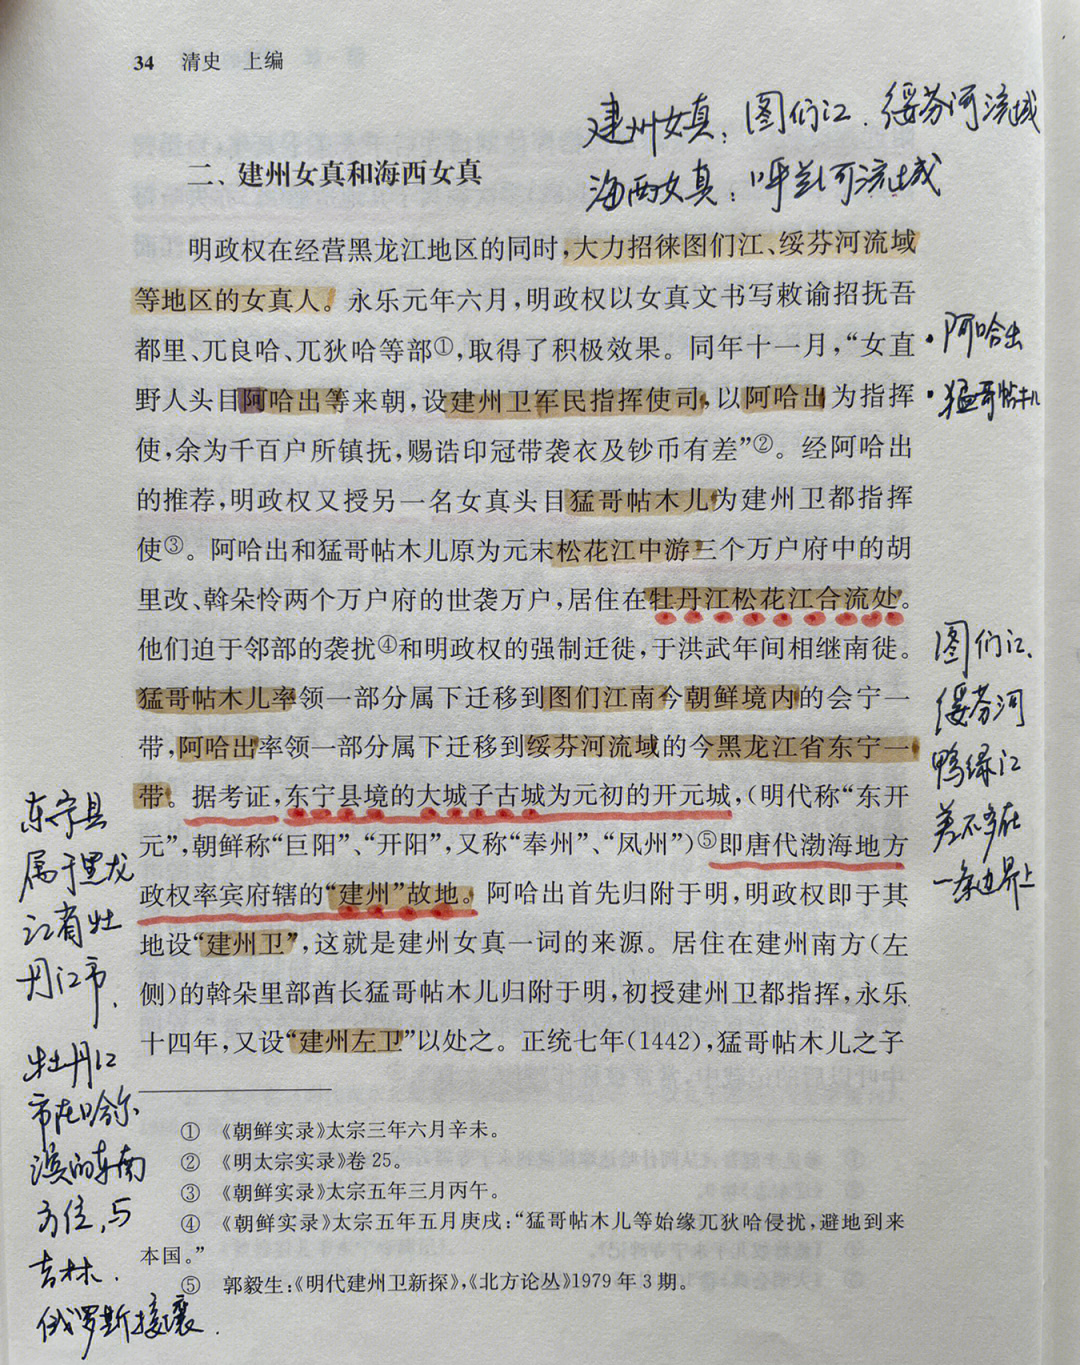 34 清史 上编
建州女真：图们江、绥芬河流域
海西女真：呼兰河流域
二、建州女真和海西女真
明政权在经营黑龙江地区的同时，大力招徕图们江、绥芬河流域
等地区的女真人。永乐元年六月，明政权以女真文书写敕谕招抚吾
都里、兀良哈、兀狄哈等部①，取得了积极效果。同年十一月，“女直
野人头目阿哈出等来朝，设建州卫军民指挥使司，以阿哈出为指挥
使，余为千百户所镇抚，赐诰印冠带袭衣及钞币有差”②。经阿哈出
的推荐，明政权又授另一名女真头目猛哥帖木儿为建州卫都指挥
使③。阿哈出和猛哥帖木儿原为元末松花江中游三个万户府中的胡
里改、斡朵怜两个万户府的世袭万户，居住在牡丹江松花江合流处。
他们迫于邻部的袭扰④和明政权的强制迁徙，于洪武年间相继南徙。
猛哥帖木儿率领一部分属下迁移到图们江南今朝鲜境内的会宁一
带，阿哈出率领一部分属下迁移到绥芬河流域的今黑龙江省东宁一
带。据考证，东宁县境的大城子古城为元初的开元城，（明代称“东开
元”，朝鲜称“巨阳”、“开阳”，又称“奉州”、“凤州”）⑤即唐代渤海地方
政权率宾府辖的“建州”故地。阿哈出首先归附于明，明政权即于其
地设“建州卫”，这就是建州女真一词的来源。居住在建州南方（左
侧）的斡朵里部酋长猛哥帖木儿归附于明，初授建州卫都指挥，永乐
十四年，又设“建州左卫”以处之。正统七年（1442），猛哥帖木儿之子
·阿哈出
·猛哥帖木儿
图们江、
绥芬河
鸭绿江
差不多在
一条边界上
东宁县
属于黑龙
江省牡
丹江市，
牡丹江
市在哈尔
滨的东南
方位，与
吉林、
俄罗斯接壤．
① 《朝鲜实录》太宗三年六月辛未。
② 《明太宗实录》卷25。
③ 《朝鲜实录》太宗五年三月丙午。
④ 《朝鲜实录》太宗五年五月庚戌：“猛哥帖木儿等始缘兀狄哈侵扰，避地到来
本国。”
⑤ 郭毅生：《明代建州卫新探》，《北方论丛》1979年3期。